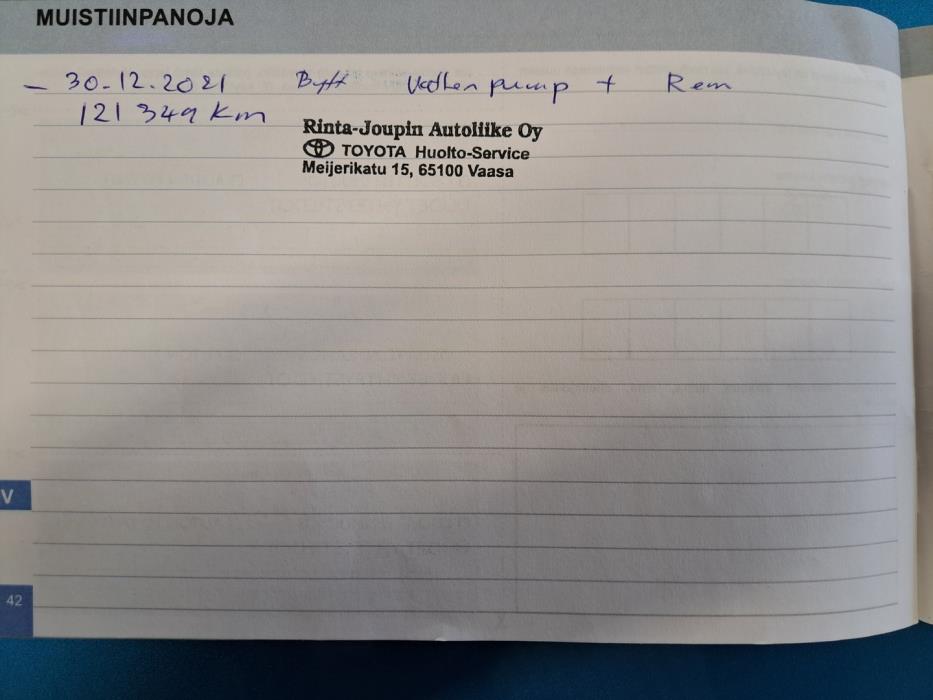 MUISTIINPANOJA
- 30.12.2021 Bytt Vatten pump + Rem
121 349 km
Rinta-Joupin Autoliike Oy
TOYOTA Huolto-Service
Meijerikatu 15, 65100 Vaasa
V
42